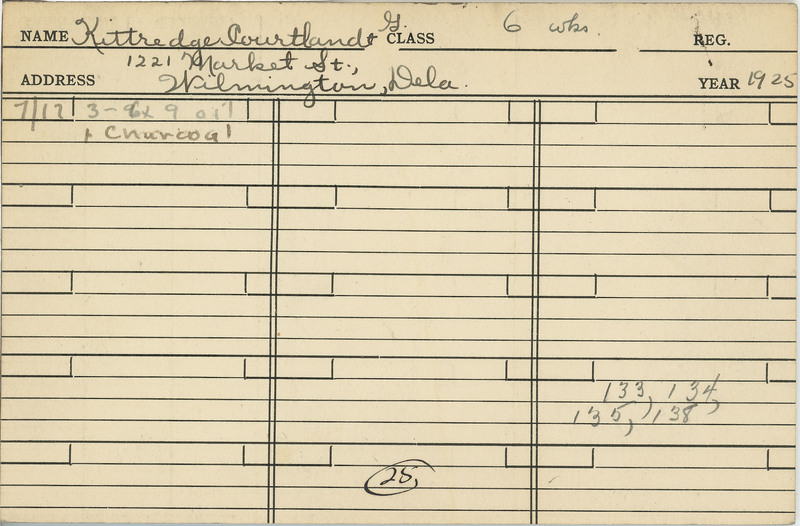 NAME Kittredge Courtlandt G. CLASS 6 wks. REG.
1221 Market St.,
ADDRESS Wilmington, Dela. YEAR 1925
7/17 3-6x9 oil
1 Charcoal
133, 134,
135, 138
25,